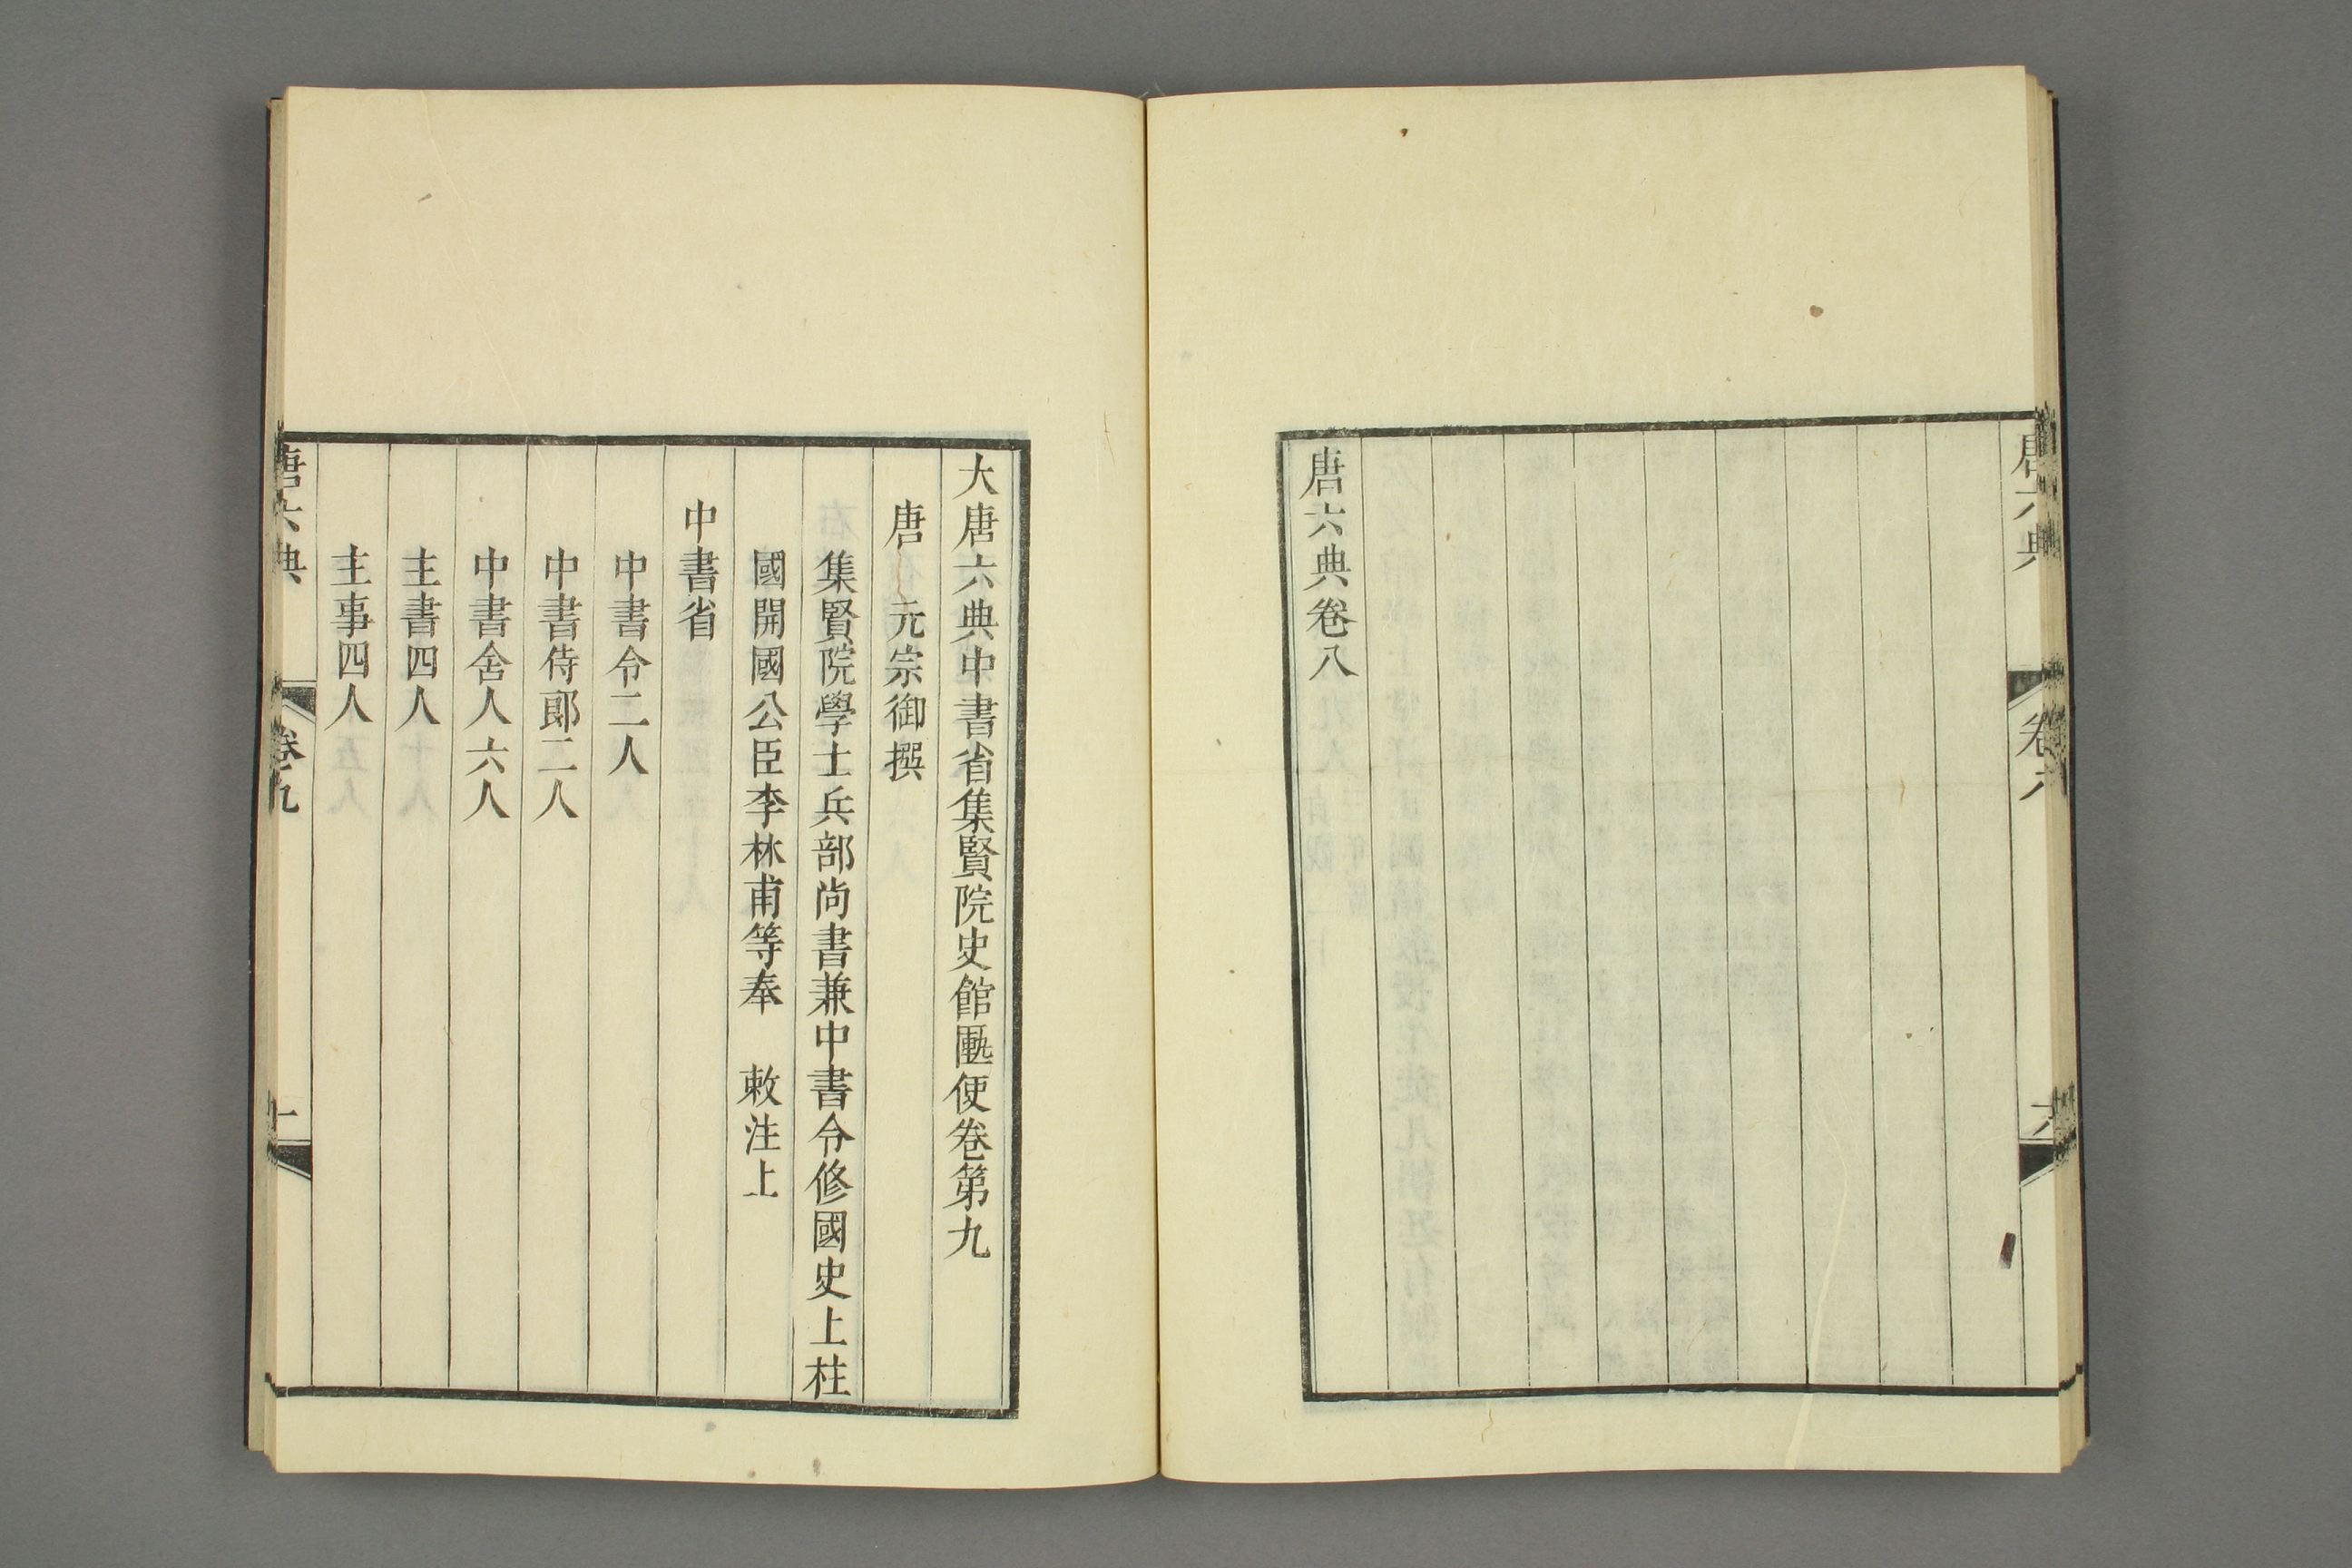 唐六典卷八
大唐六典中書省集賢院史館匭使卷第九
唐　元宗御撰
集賢院學士兵部尚書兼中書令修國史上柱
國開國公臣李林甫等奉　敕注上
中書省
中書令二人
中書侍郎二人
中書舍人六人
主書四人
主事四人
唐六典　卷九　一